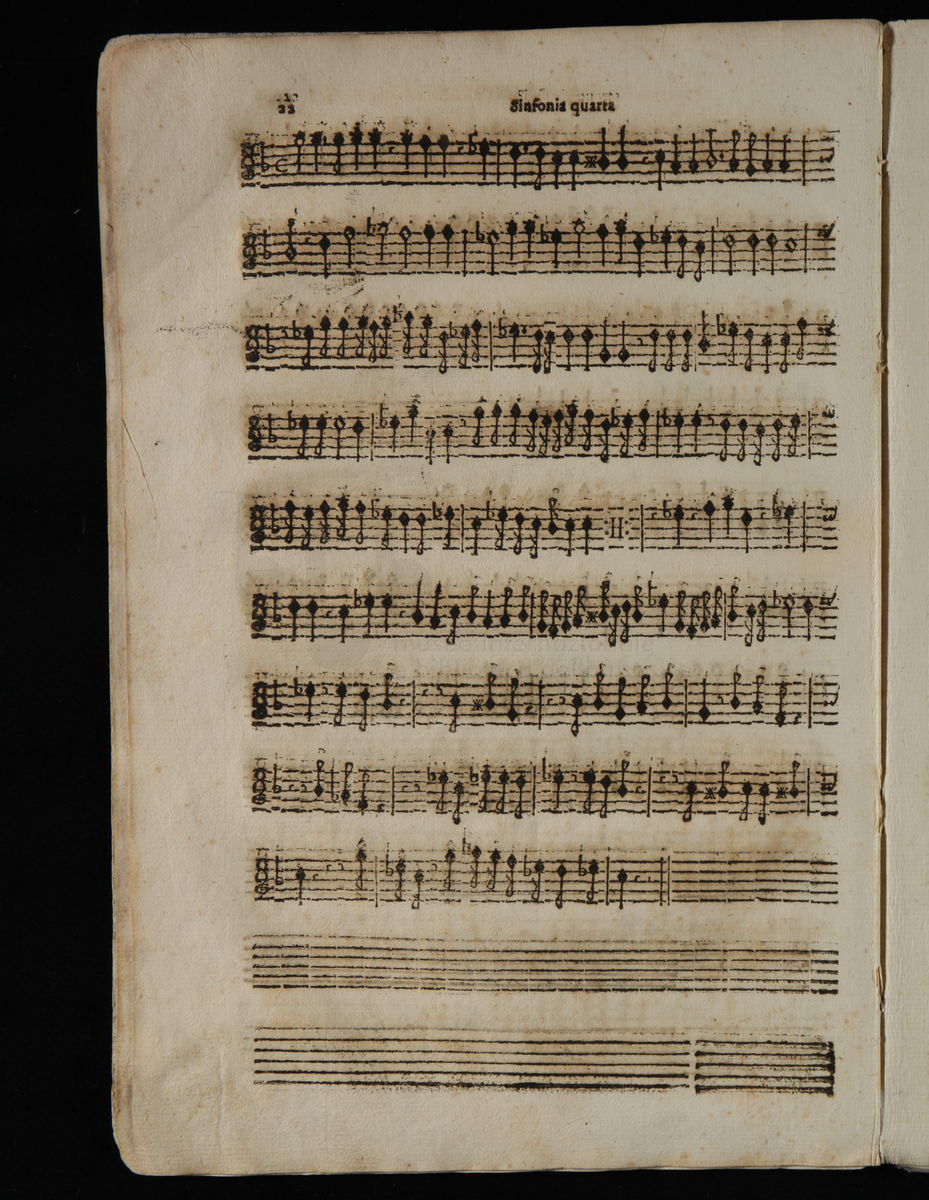 22 Sinfonia quarta